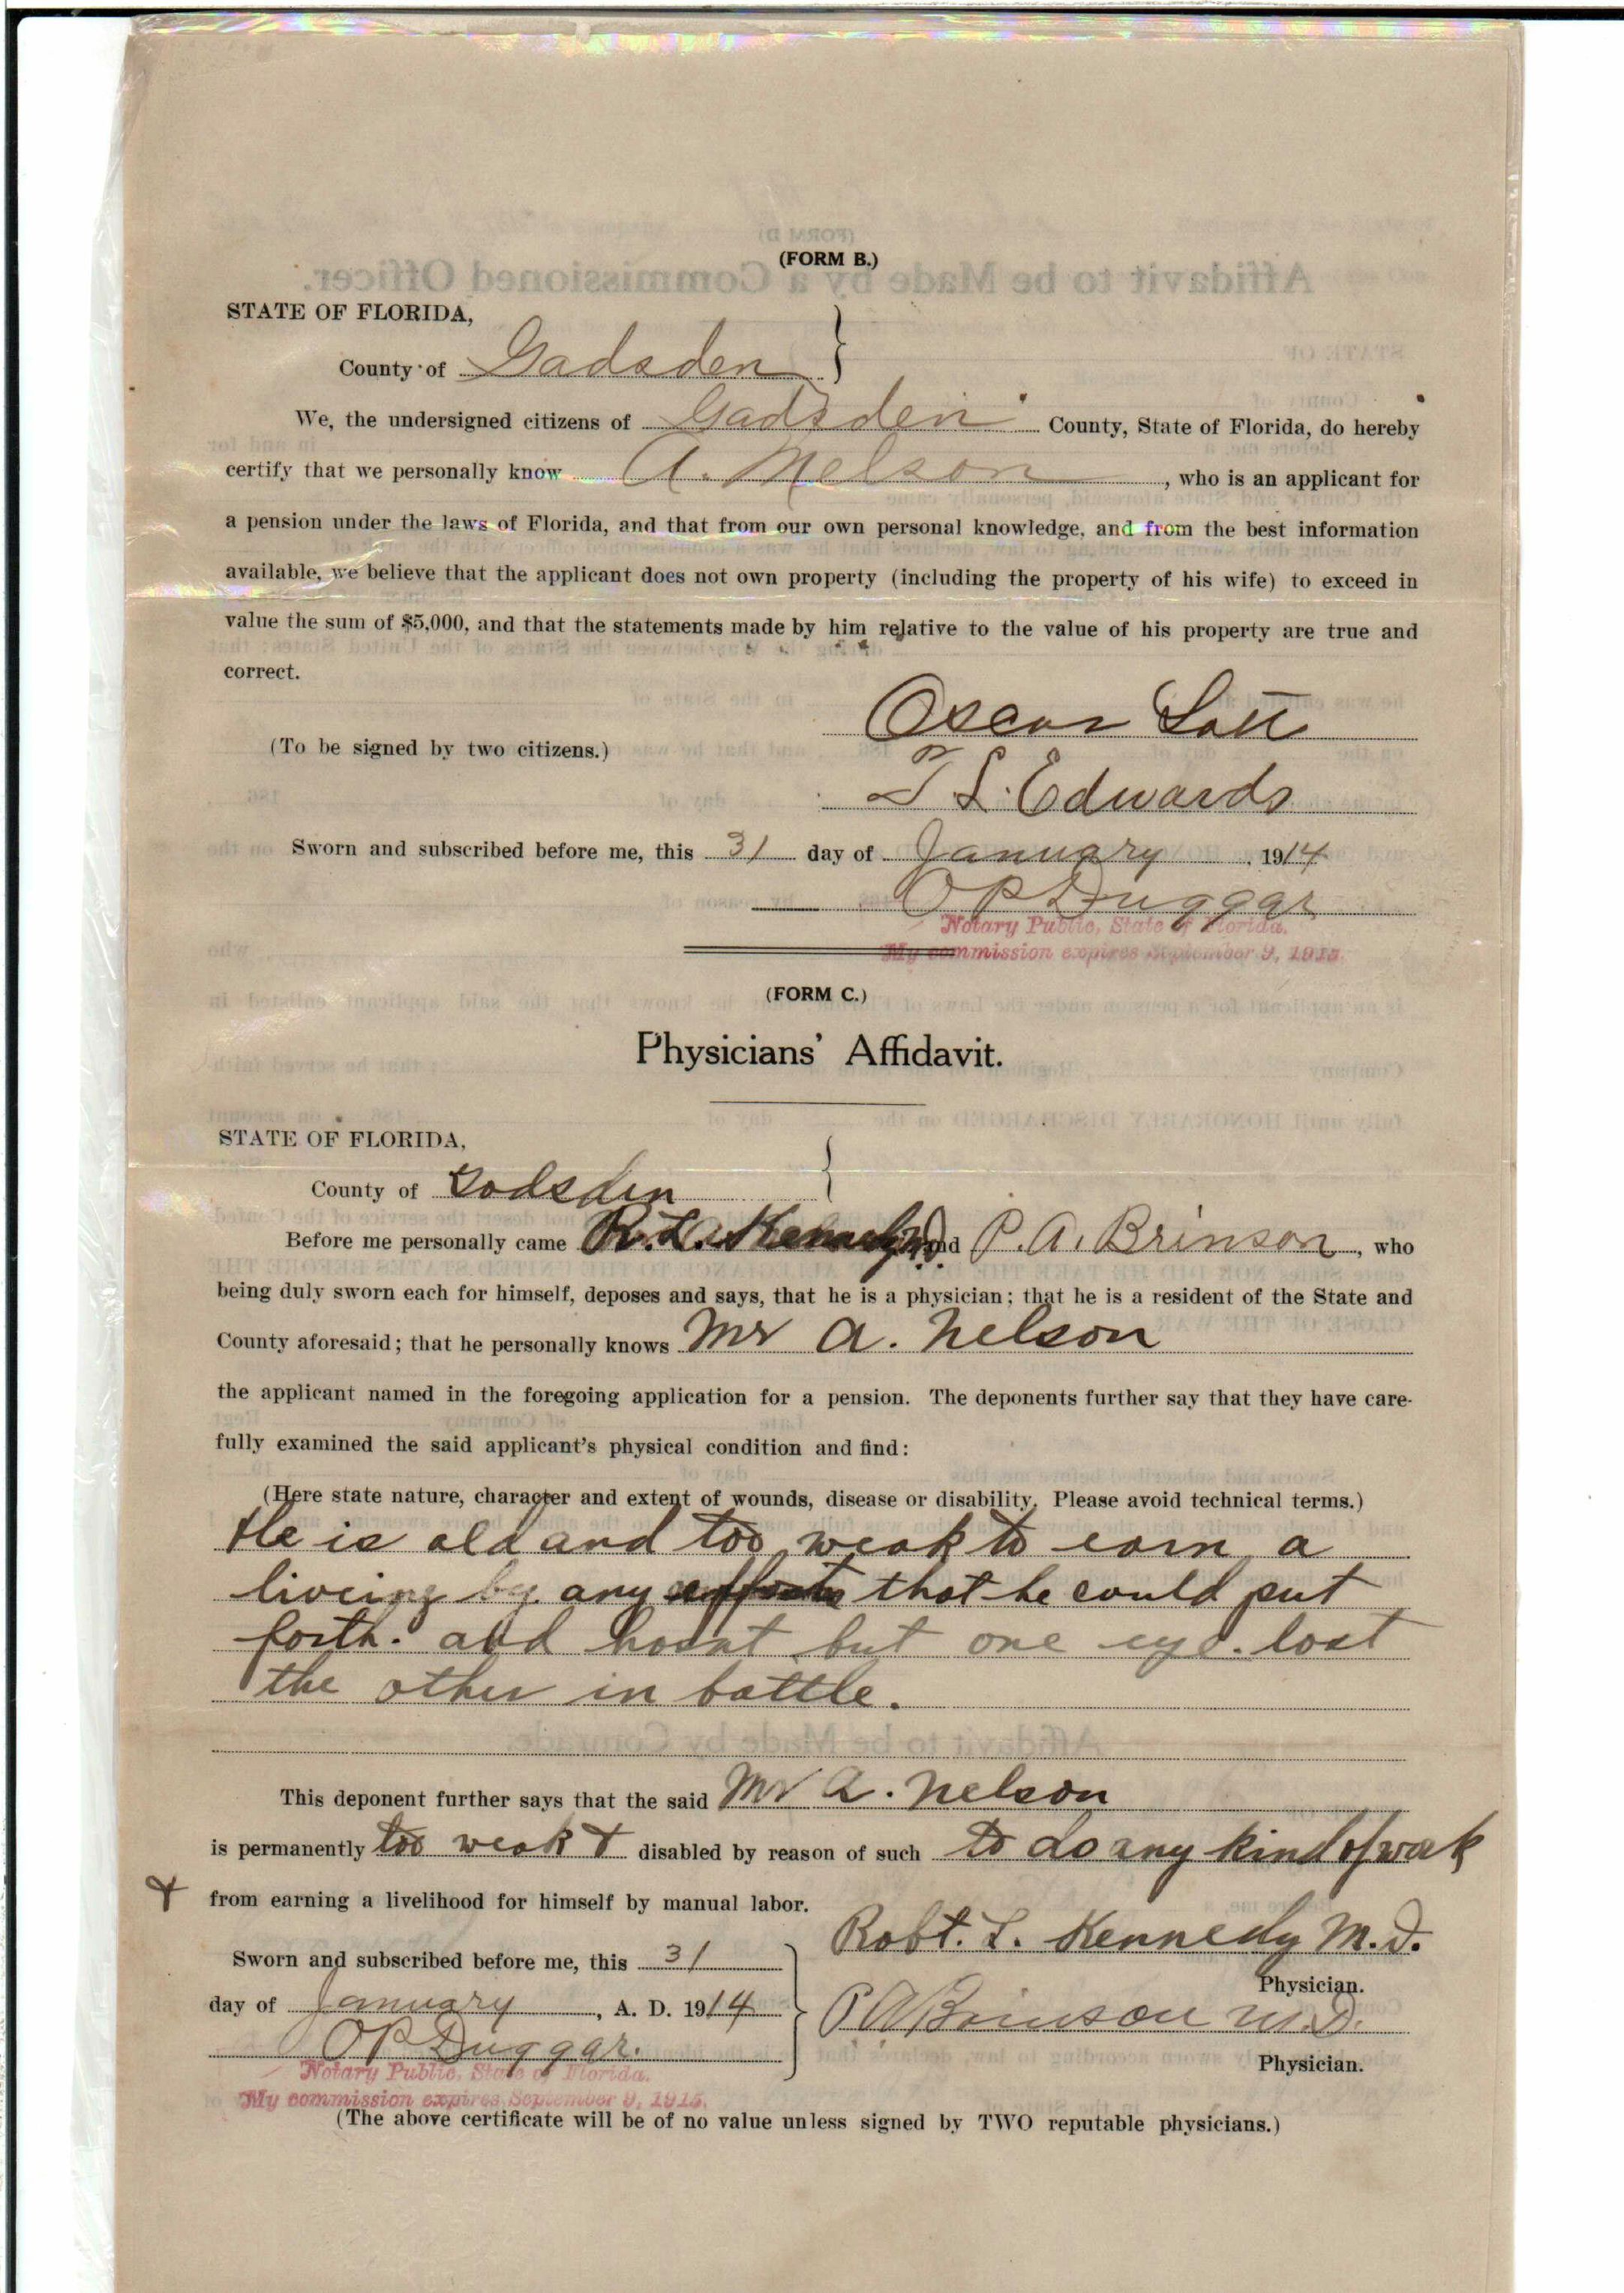 (FORM B.)
STATE OF FLORIDA,
County of Gadsden }
We, the undersigned citizens of Gadsden County, State of Florida, do hereby
certify that we personally know A. Nelson, who is an applicant for
a pension under the laws of Florida, and that from our own personal knowledge, and from the best information
available, we believe that the applicant does not own property (including the property of his wife) to exceed in
value the sum of $5,000, and that the statements made by him relative to the value of his property are true and
correct.
Oscar Lott
(To be signed by two citizens.)
T L. Edwards
Sworn and subscribed before me, this 31 day of January, 1914
O P Duggar
Notary Public, State of Florida.
My commission expires September 9, 1915.
(FORM C.)
Physicians' Affidavit.
STATE OF FLORIDA,
County of Gadsden }
Before me personally came R. L. Kennedy and P. A. Brinson, who
being duly sworn each for himself, deposes and says, that he is a physician; that he is a resident of the State and
County aforesaid; that he personally knows Mr A. Nelson
the applicant named in the foregoing application for a pension. The deponents further say that they have care-
fully examined the said applicant's physical condition and find:
(Here state nature, character and extent of wounds, disease or disability. Please avoid technical terms.)
He is old and too weak to earn a
liveing by any efforts that he could put
forth. and hasnt but one eye. lost
the other in battle.
This deponent further says that the said Mr A. Nelson
is permanently too weak & disabled by reason of such to do any kind of work
& from earning a livelihood for himself by manual labor.
Robt. L. Kennedy M.D.
Physician.
Sworn and subscribed before me, this 31
day of January, A. D. 1914
P A Brinson M.D.
Physician.
O P Duggar.
Notary Public, State of Florida.
My commission expires September 9, 1915.
(The above certificate will be of no value unless signed by TWO reputable physicians.)